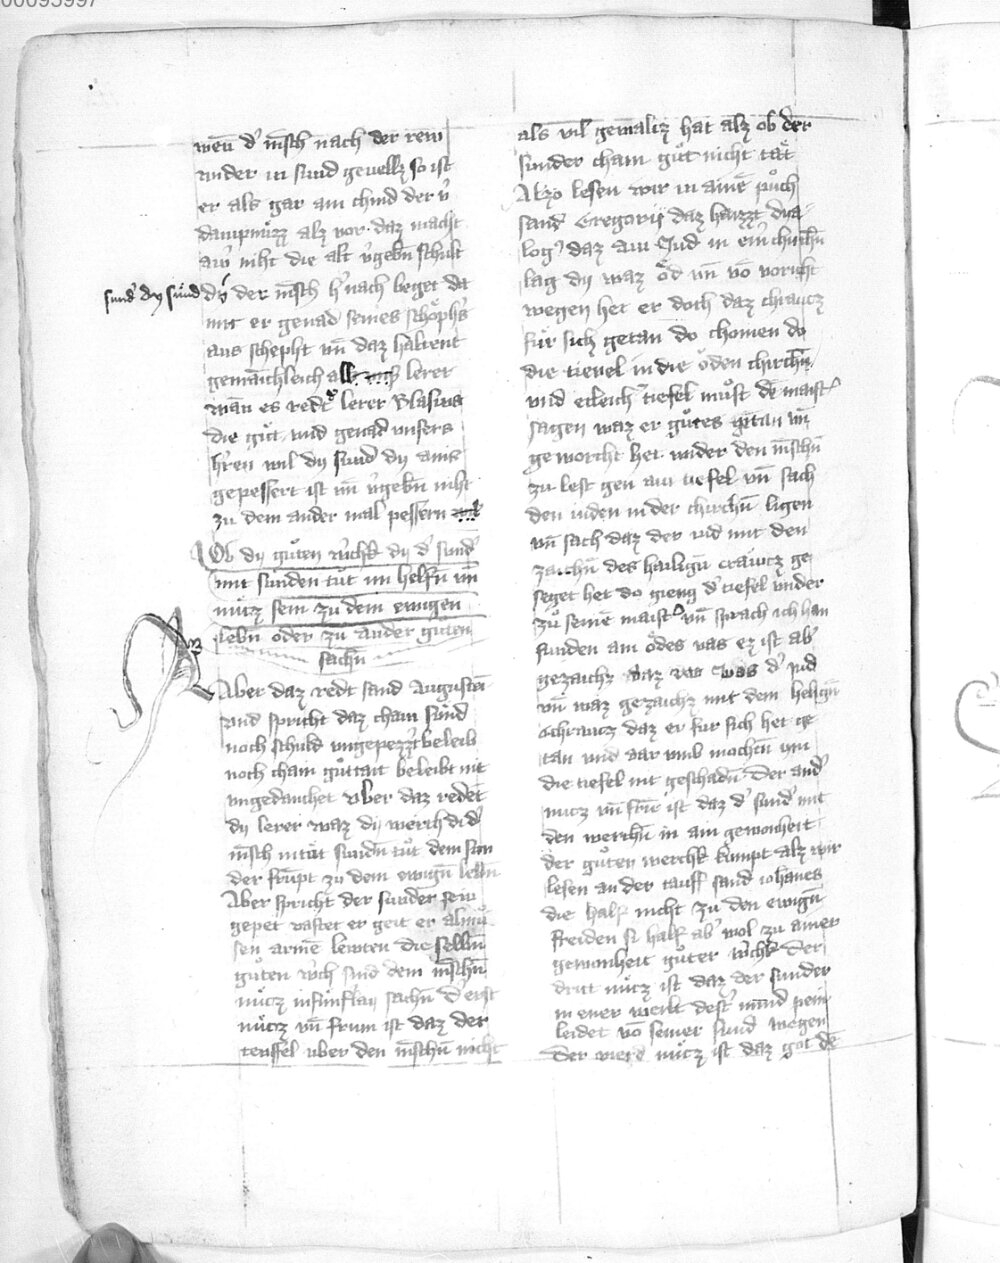 00095997
wen̄ d' mēsch nach der rew
wider in sund geuellz so ist
er als gar ain chind der v̄
dampnuͤzz alz vor. daz macht
aw' niht die alt v'gebn̄ schult
sund' dy sünd
dy der mēsch h'nach beget da
mit er genad seines schöph's
aus schepht vn̄ daz haltent
gemainchleich all lerer
wan es redt lerer Blasius
die guͤt vnd genad vnsers
h'ren wil dy sund dy ains
gepessert ist vn̄ v'gebn̄ niht
zu dem ander mal pessern
Ob dy guͤten w'chk dy d' sund'
mit sünden tuͤt im helfn̄ vn̄
nuͤcz sein zu dem ewigen
lebn̄ oder zu ander guͤten
sachn̄
Aber daz redt sand Augustin̄
vnd spricht daz chain sünd
noch schuld vngepezzert beleib
noch chain guͤttait beleibt nit
vngedanchet vber daz redet
dy lerer waz dy werch di d'
mēsch mit sündn̄ tuͤt dem sun
der frumpt zu dem ewign̄ lebn̄
Aber spricht der sunder sein
gepet vastet er geit er almuͤ
sen armē lewten die selbn̄
guͤten w'ch sind dem mēschn̄
nuͤcz in fünflay sachn̄ d' erst
nuͤcz vn̄ frum ist daz der
teuffel vber den mēschn̄ nicht
als vil gewaltz hat alz ob der
sunder chain guͤt nicht taͤt
Alzo lesen wir in ainē puͦch
sand Gregorij daz haizzt dya
log' daz ain Jud in ein' chirchn̄
lag dy waz ͦod vn̄ vō voricht
wegen het er doch daz chraucz
fuͤr sich getan do chomen do
die tieuel in die ͦoden chirchn̄
vnd etleich' tiefel muͤst dē maist'
sagen waz er guͤtes getan vn̄
geworcht het vnder den mēschn̄
zu lest gen ain tiefel vn̄ sach
den iuden in der chirchn̄ ligen
vn̄ sach daz der iud mit den
zaichn̄ des hailign̄ crawcz ge
seget het do gieng d' tiefel wider
zuͤ seinē maist' vn̄ sprach ich han
funden ain ͦodes vas ez ist ab'
gezaichz daz vas was d' jud
vn̄ waz gezaichz mit dem helign̄
chrawcz daz er fur sich het ge
tan vnd dar vmb mochtn̄ im
die tiefel nit geschadn̄ Der and'
nucz vn̄ frum ist daz d' sund' mit
den werchn̄ in ain gewonheit
der guͤten werchk kumpt alz wir
lesen an der tauff sand ioh̄anes
die half nicht zu den ewign̄
freiden si half ab' wol zu ainer
gewonheit guͤter w'chk Der
drit nuͤcz ist daz der sunder
in ener werlt dest' mind' pein
leidet vō seiner sund wegen
Der vierd nuͤcz ist daz got dē